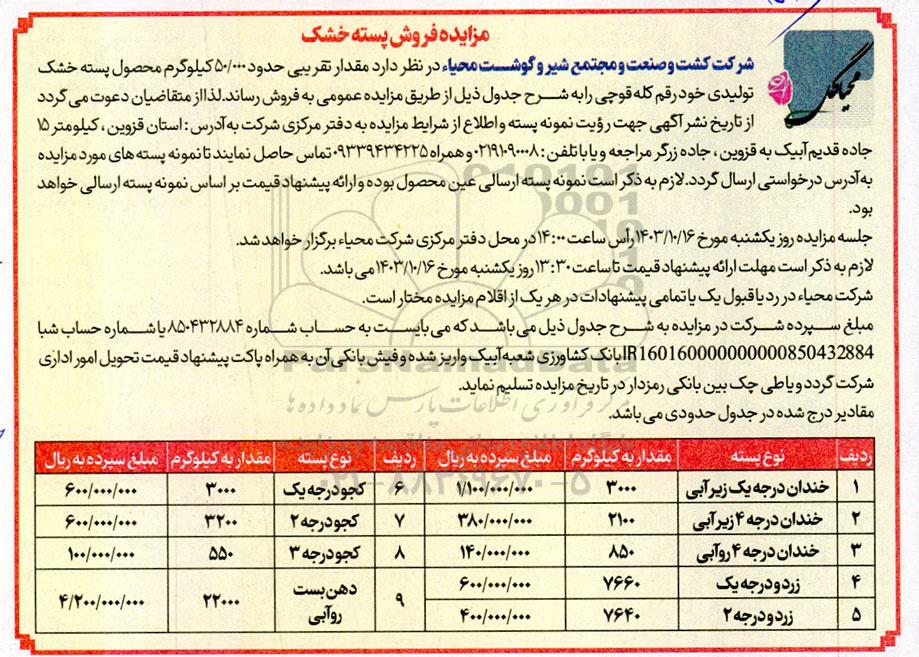 مزایده فروش پسته خشک
محیاگل
شرکت کشت و صنعت و مجتمع شیر و گوشت محیاء در نظر دارد مقدار تقریبی حدود ۵۰/۰۰۰ کیلوگرم محصول پسته خشک
تولیدی خود رقم کله قوچی را به شرح جدول ذیل از طریق مزایده عمومی به فروش رساند. لذا از متقاضیان دعوت می گردد
از تاریخ نشر آگهی جهت رؤیت نمونه پسته و اطلاع از شرایط مزایده به دفتر مرکزی شرکت به آدرس : استان قزوین ، کیلومتر ۱۵
جاده قدیم آبیک به قزوین ، جاده زرگر مراجعه و یا با تلفن : ۰۲۱۹۱۰۹۰۰۰۸ و همراه ۰۹۳۳۹۴۳۴۲۲۵ تماس حاصل نمایند تا نمونه پسته های مورد مزایده
به آدرس درخواستی ارسال گردد. لازم به ذکر است نمونه پسته ارسالی عین محصول بوده و ارائه پیشنهاد قیمت بر اساس نمونه پسته ارسالی خواهد
بود.
جلسه مزایده روز یکشنبه مورخ ۱۴۰۳/۱۰/۱۶ رأس ساعت ۱۴:۰۰ در محل دفتر مرکزی شرکت محیاء برگزار خواهد شد.
لازم به ذکر است مهلت ارائه پیشنهاد قیمت تا ساعت ۱۳:۳۰ روز یکشنبه مورخ ۱۴۰۳/۱۰/۱۶ می باشد.
شرکت محیاء در رد یا قبول یک یا تمامی پیشنهادات در هر یک از اقلام مزایده مختار است.
مبلغ سپرده شرکت در مزایده به شرح جدول ذیل می باشد که می بایست به حساب شماره ۸۵۰۴۳۲۸۸۴ یا شماره حساب شبا
IR160160000000000850432884 بانک کشاورزی شعبه آبیک واریز شده و فیش بانکی آن به همراه پاکت پیشنهاد قیمت تحویل امور اداری
شرکت گردد و یا طی چک بین بانکی رمزدار در تاریخ مزایده تسلیم نماید.
مقادیر درج شده در جدول حدودی می باشد.
ردیف نوع پسته مقدار به کیلوگرم مبلغ سپرده به ریال ردیف نوع پسته مقدار به کیلوگرم مبلغ سپرده به ریال
۱ خندان درجه یک زیر آبی ۳۰۰۰ ۱/۱۰۰/۰۰۰/۰۰۰ ۶ کجو درجه یک ۳۰۰۰ ۶۰۰/۰۰۰/۰۰۰
۲ خندان درجه ۴ زیر آبی ۲۱۰۰ ۳۸۰/۰۰۰/۰۰۰ ۷ کجو درجه ۲ ۳۲۰۰ ۶۰۰/۰۰۰/۰۰۰
۳ خندان درجه ۴ روآبی ۸۵۰ ۱۴۰/۰۰۰/۰۰۰ ۸ کجو درجه ۳ ۵۵۰ ۱۰۰/۰۰۰/۰۰۰
۴ زردو درجه یک ۷۶۶۰ ۶۰۰/۰۰۰/۰۰۰ ۹ دهن بست روآبی ۲۲۰۰۰ ۴/۲۰۰/۰۰۰/۰۰۰
۵ زردو درجه ۲ ۷۶۴۰ ۴۰۰/۰۰۰/۰۰۰
ParsNamadData
مرکز فرآوری اطلاعات پارس نماد داده ها
۰۲۱-۸۸۳۴۹۶۷۰-۵